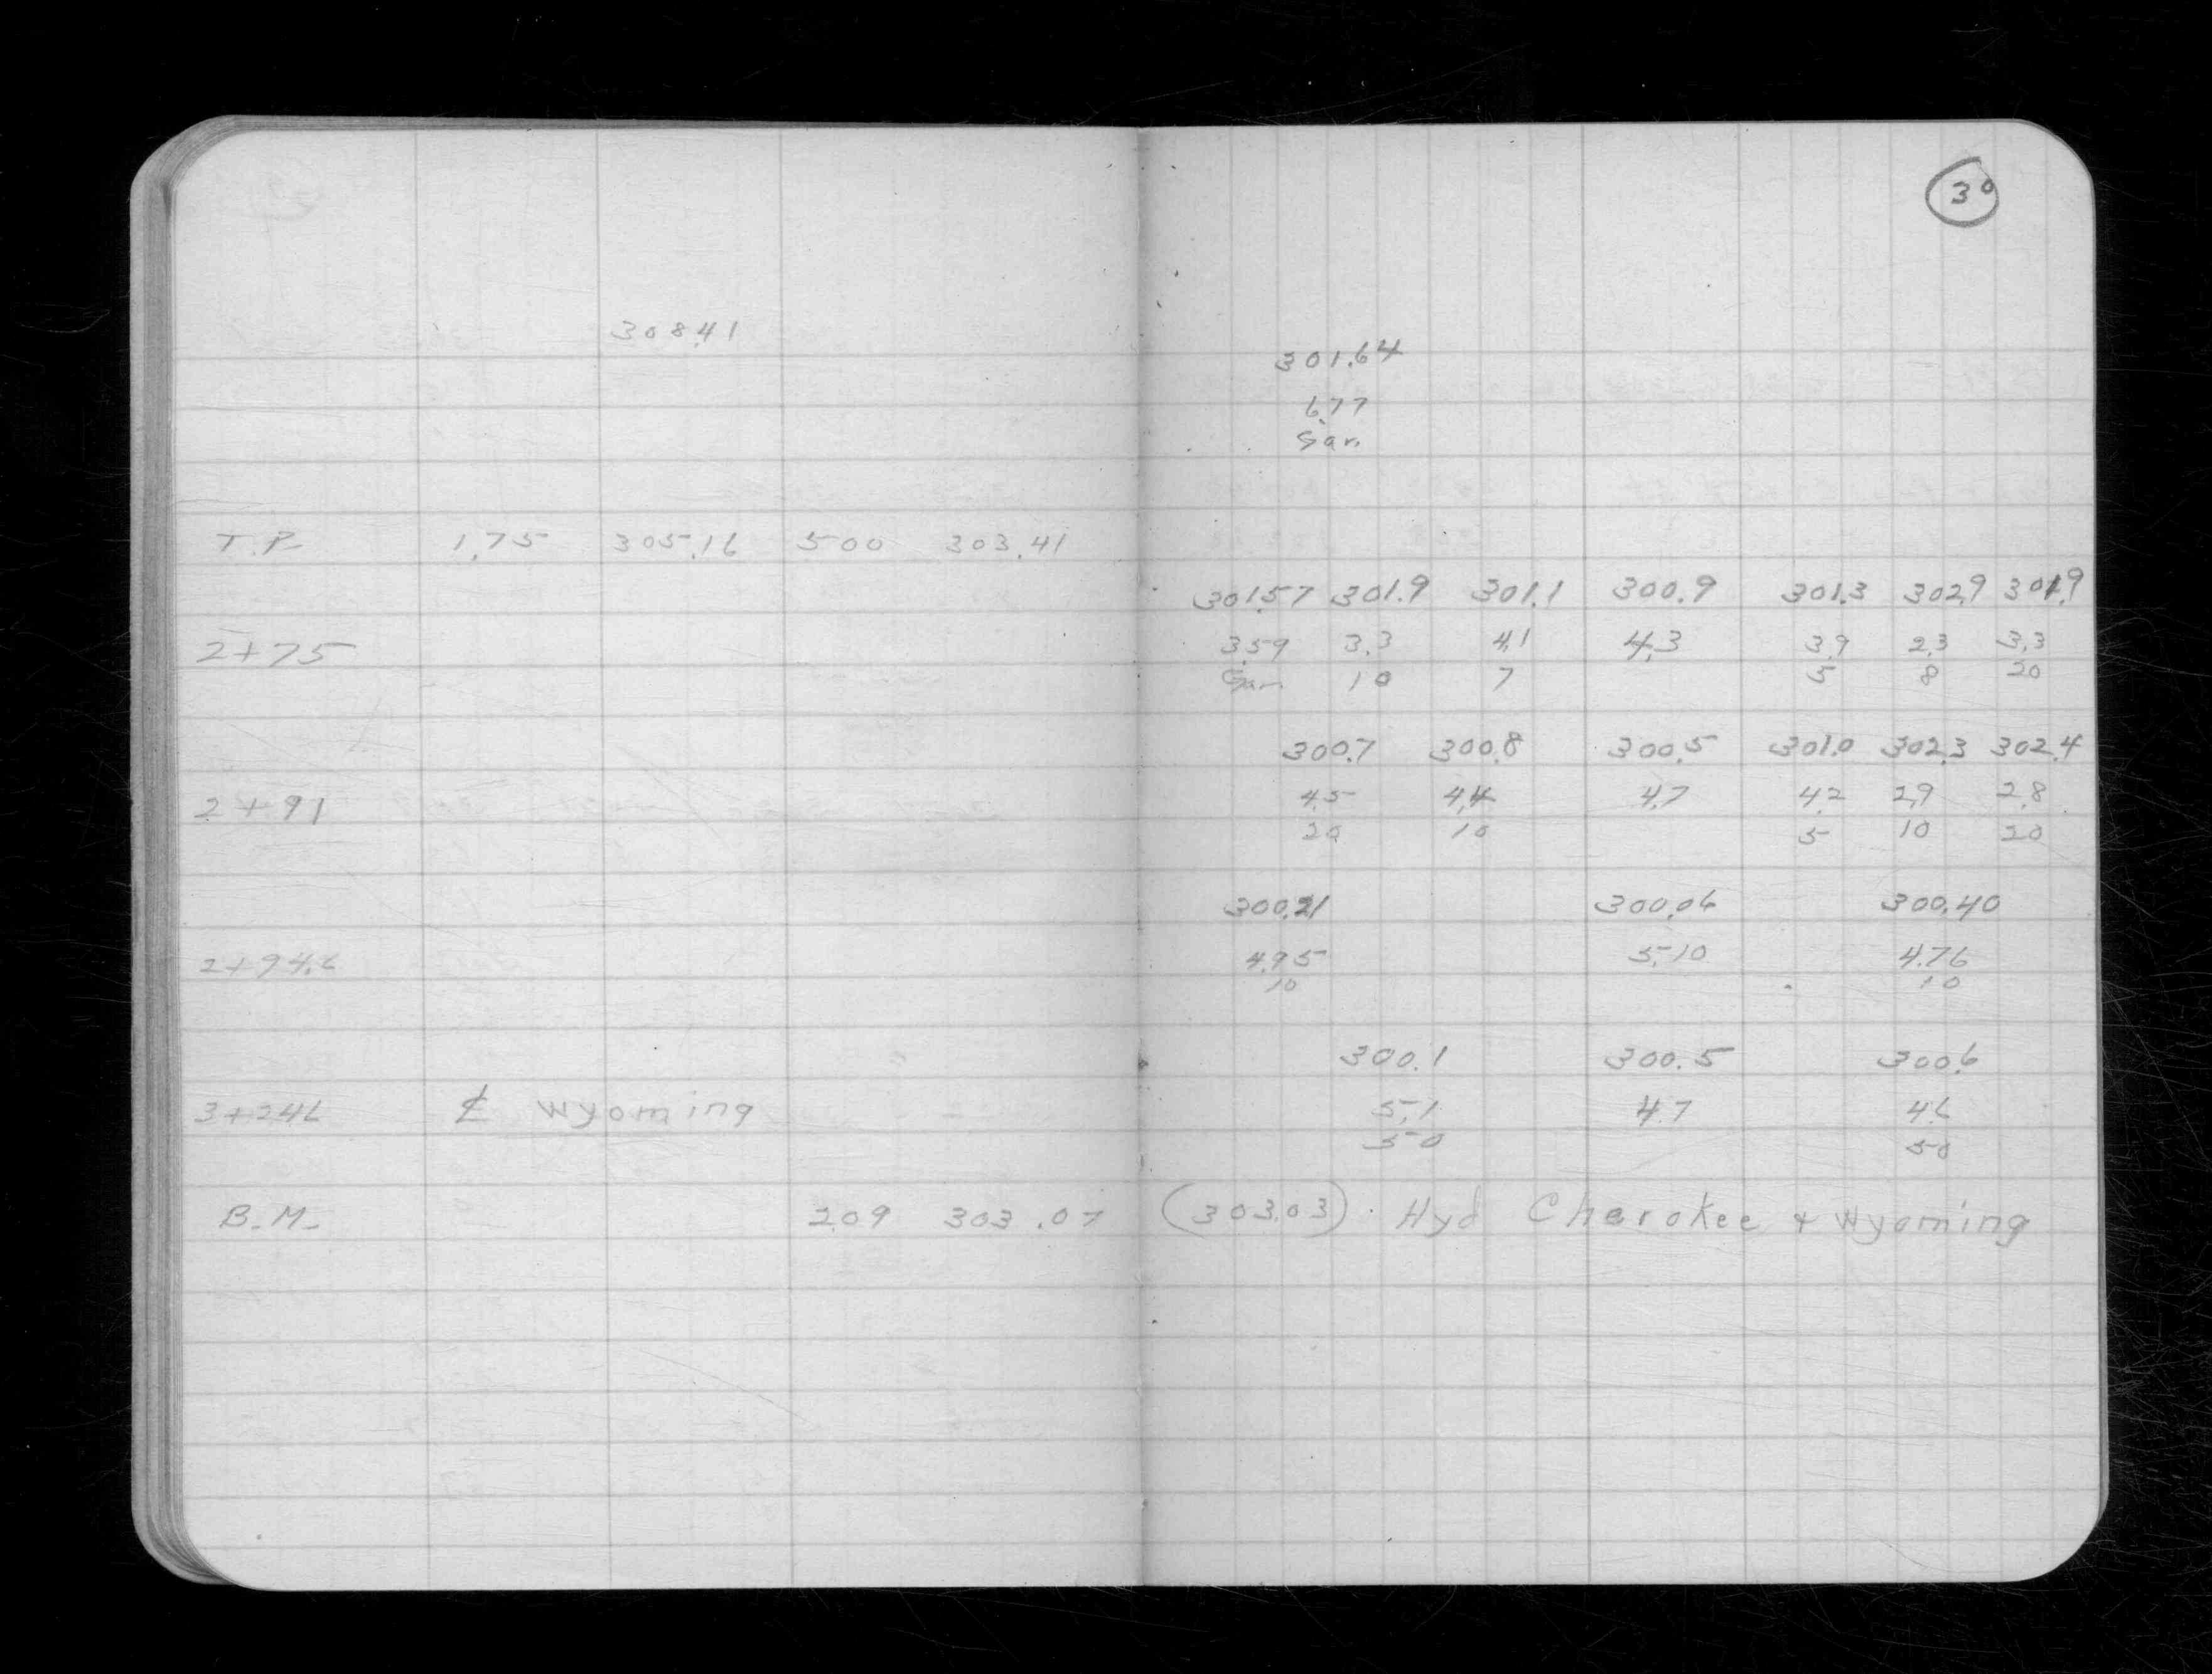 30
308.41
301.64
6.77
Gar.
T.P. 1.75 305.16 5.00 303.41
301.57 301.9 301.1 300.9 301.3 302.9 301.9
2+75 3.59 3.3 4.1 4.3 3.9 2.3 3.3
Gar. 10 7 5 8 20
300.7 300.8 300.5 301.0 302.3 302.4
2+91 4.5 4.4 4.7 4.2 2.9 2.8
20 10 5 10 20
300.21 300.06 300.40
2+94.6 4.95 5.10 4.76
10 10
300.1 300.5 300.6
3+24.6 ℄ Wyoming 5.1 4.7 4.6
50 50
B.M. 2.09 303.07 (303.03) Hyd Cherokee + Wyoming